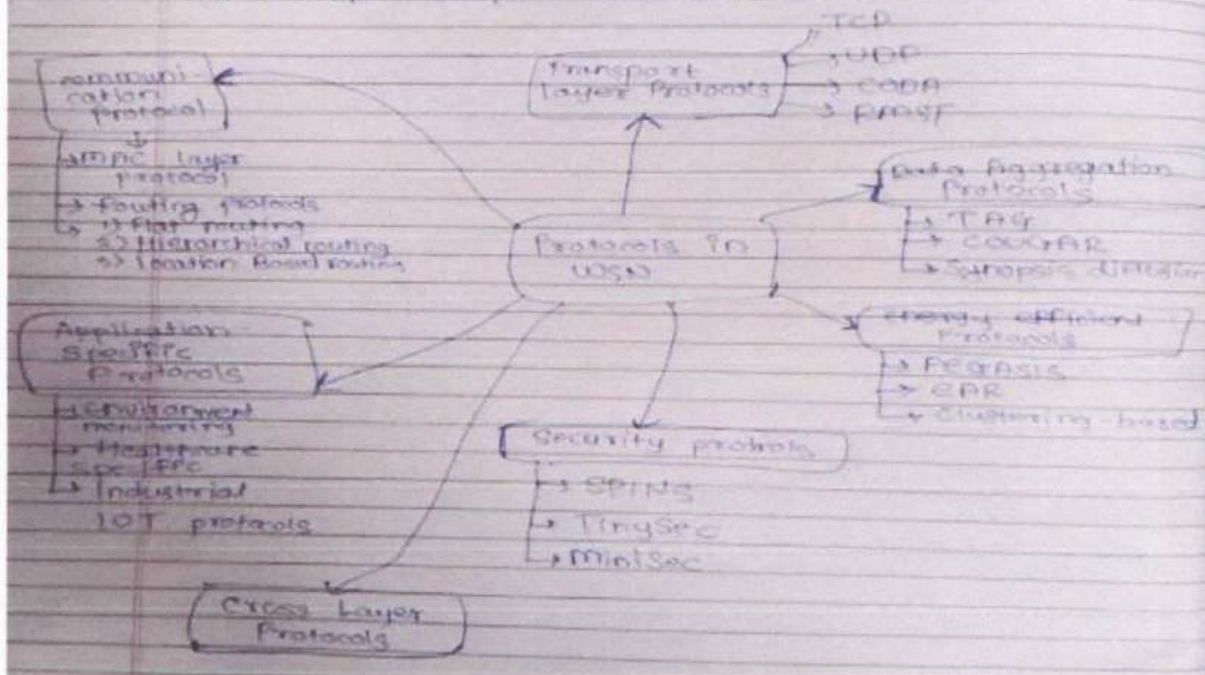 Communi-
cation
Protocol
MAC layer
protocol
Routing protocols
1) Flat routing
2) Hierarchical routing
3) Location Based routing
Transport
layer Protocols
TCP
UDP
CODA
PMSF
Data Aggregation
Protocols
TAG
COUGAR
Synopsis diffusion
Protocols in
WSN
energy efficient
Protocols
PEGASIS
EAR
Clustering-based
Application
Specific
Protocols
Environment
monitoring
Healthcare
Specific
Industrial
IOT protocols
Security protocols
SPINS
TinySec
MiniSec
Cross Layer
Protocols